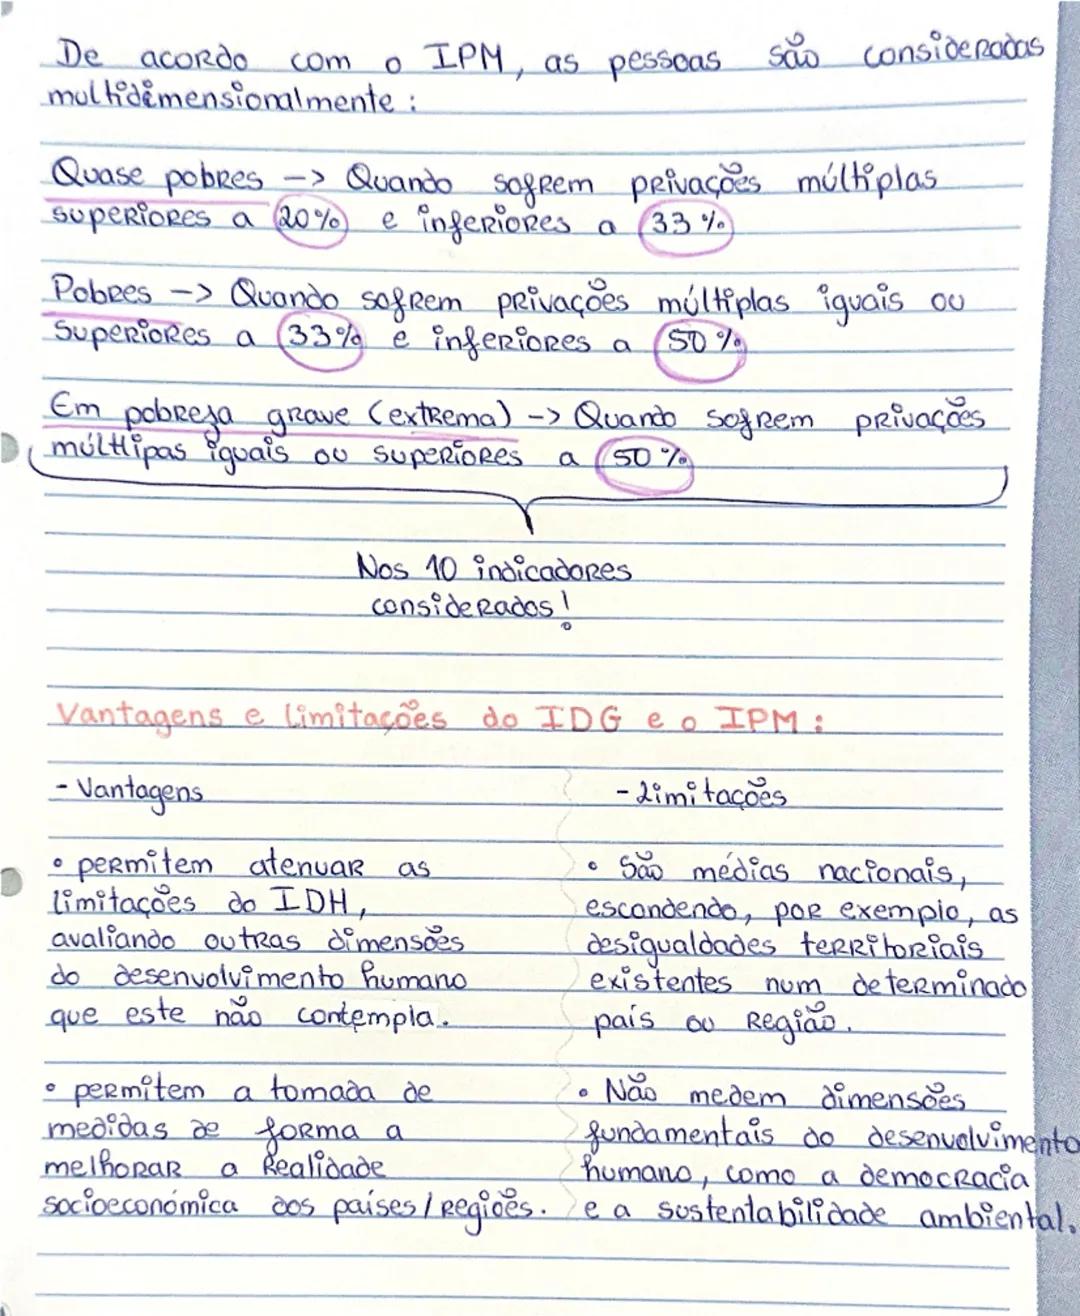 De acordo com o IPM, as pessoas são consideradas
multidimensionalmente :
Quase pobres -> Quando sofrem privações múltiplas
superiores a 20% e inferiores a 33%
Pobres -> Quando sofrem privações múltiplas iguais ou
Superiores a 33% e inferiores a 50%
Em pobreza grave (extrema) -> Quando sofrem privações
múltlipas iguais ou superiores a 50%
Nos 10 indicadores
considerados!
Vantagens e limitações do IDG e o IPM :
- Vantagens
• permitem atenuar as
limitações do IDH,
avaliando outras dimensões
do desenvolvimento humano
que este não contempla.
• permitem a tomada de
medidas de forma a
melhorar a Realidade
socioeconómica dos países/regiões.
- Limitações
• São médias nacionais,
escondendo, por exemplo, as
desigualdades territoriais
existentes num determinado
país ou Região.
• Não medem dimensões
fundamentais do desenvolvimento
humano, como a democracia
e a sustentabilidade ambiental.